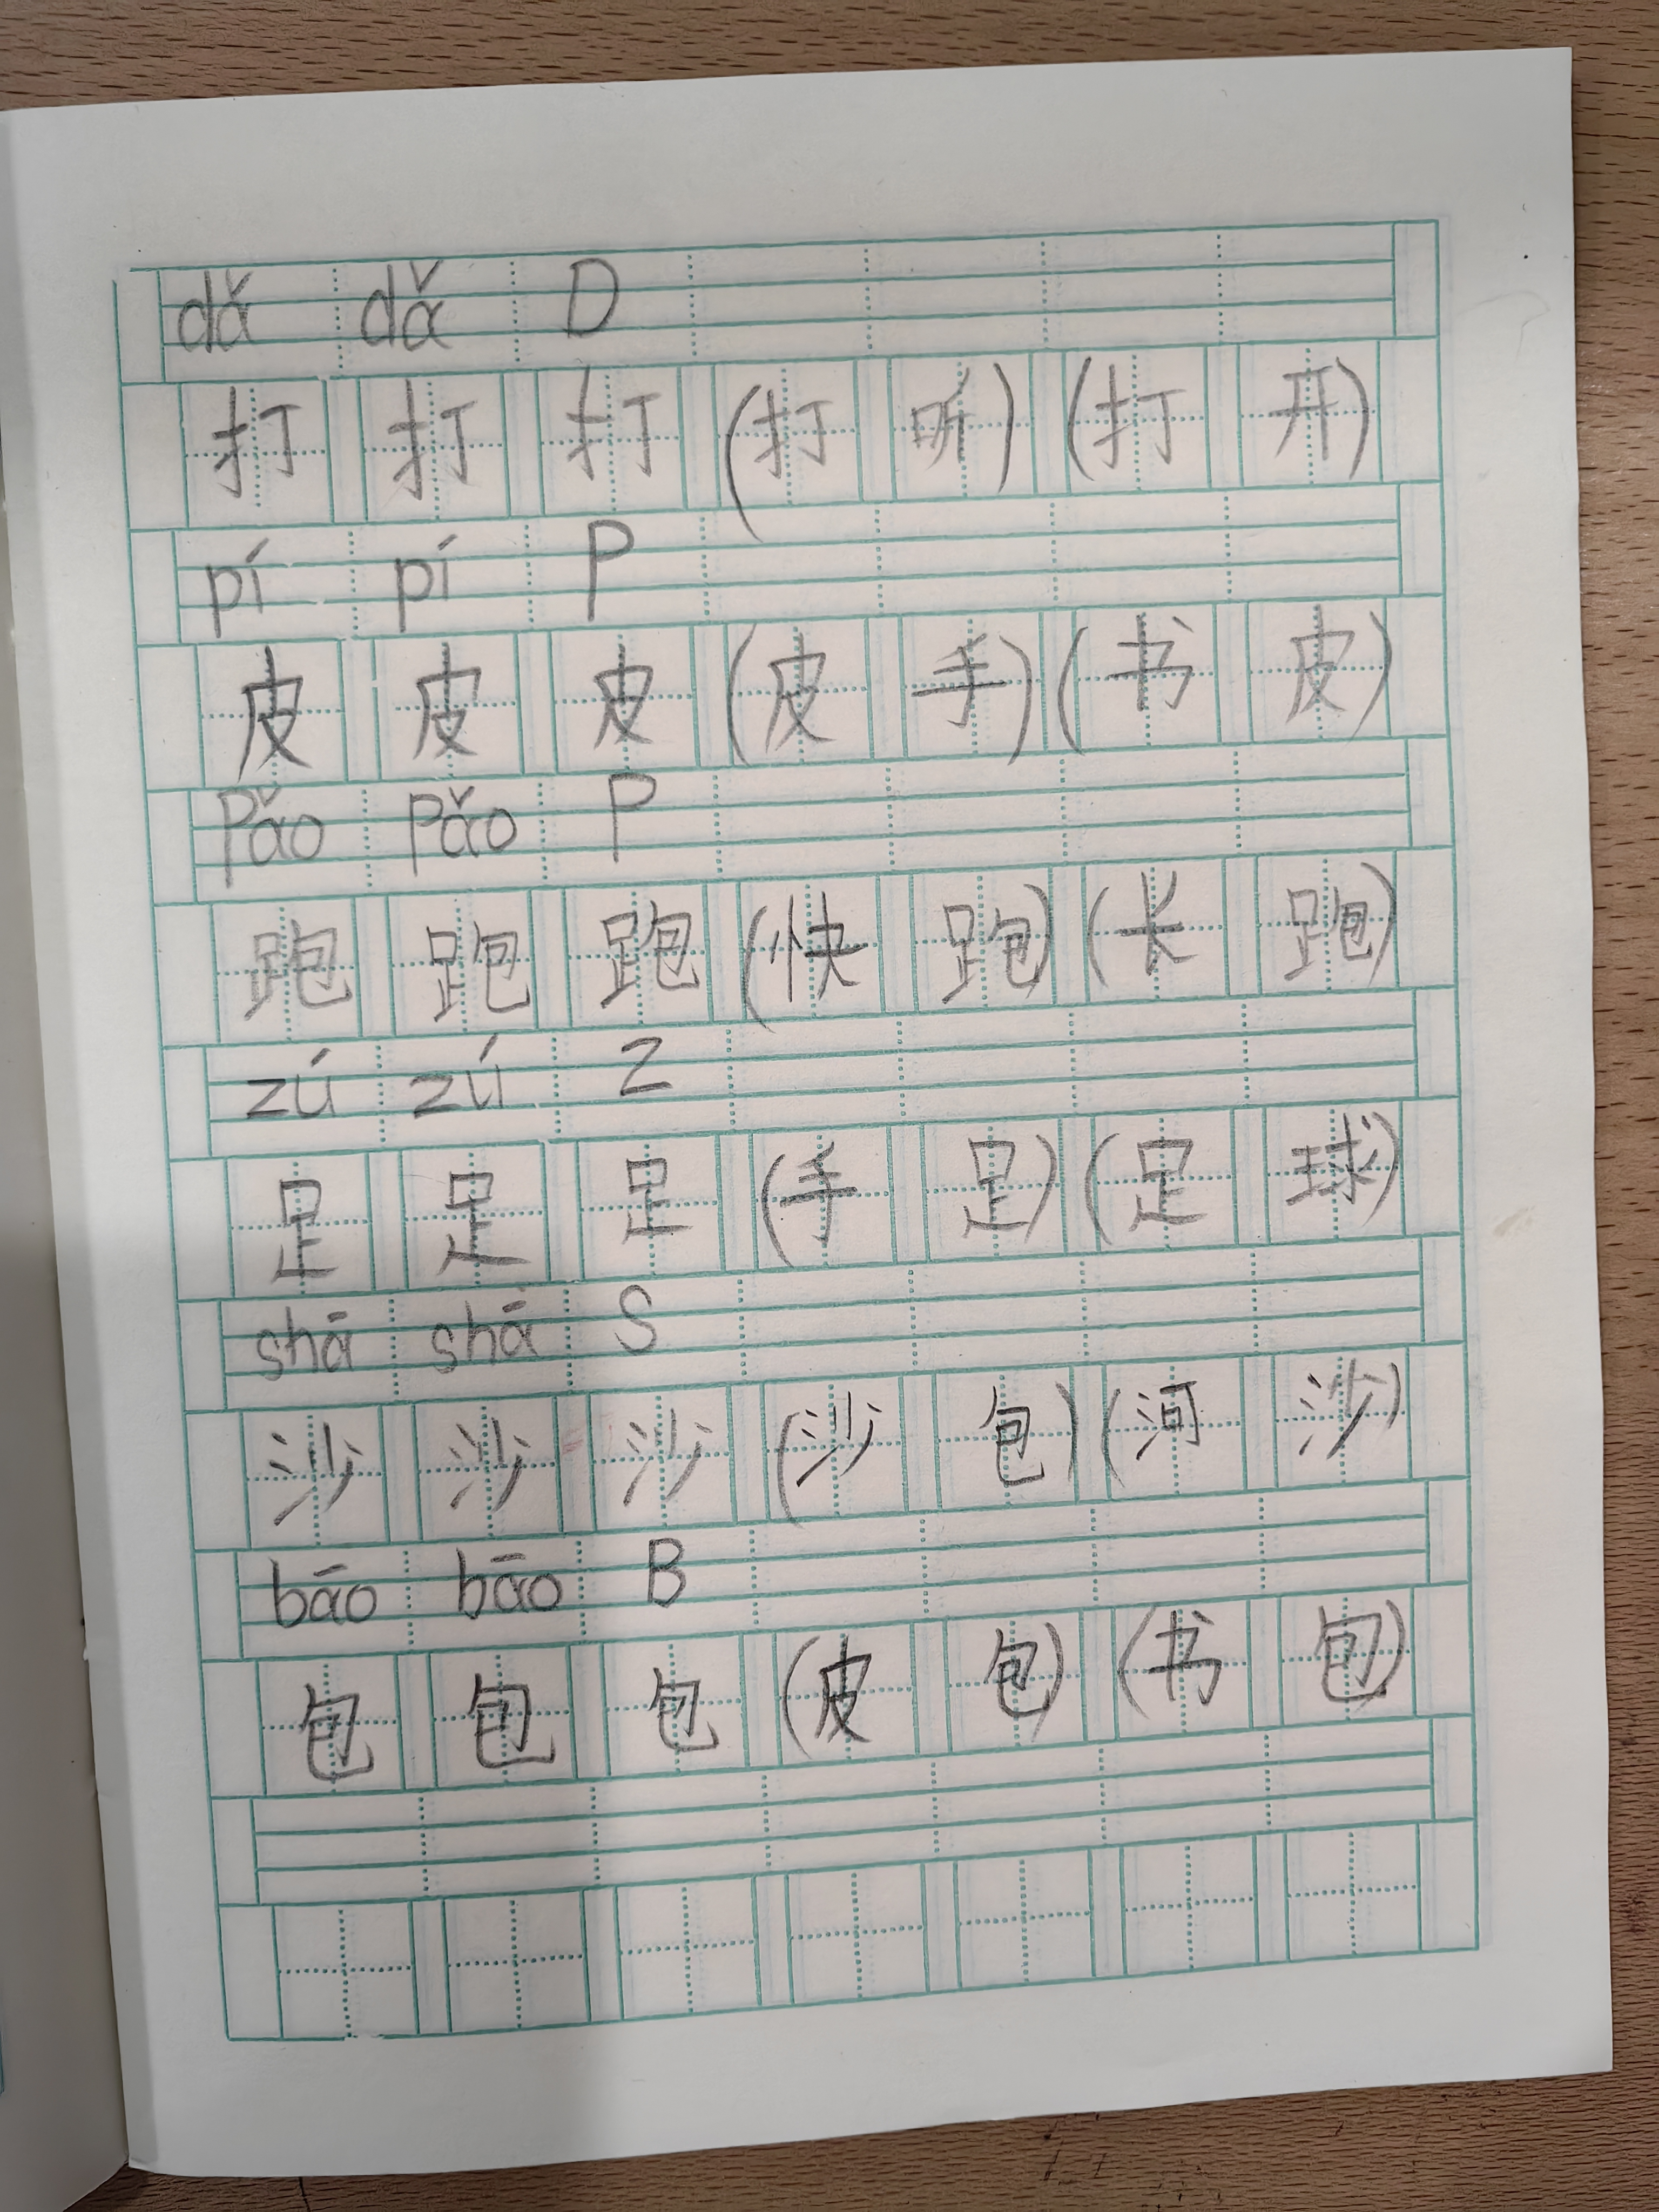 dǎ dǎ D
打 打 打 (打 听) (打 开)
pí pí P
皮 皮 皮 (皮 手) (书 皮)
pǎo pǎo P
跑 跑 跑 (快 跑) (长 跑)
zú zú Z
足 足 足 (手 足) (足 球)
shā shā S
沙 沙 沙 (沙 包) (河 沙)
bāo bāo B
包 包 包 (皮 包) (书 包)